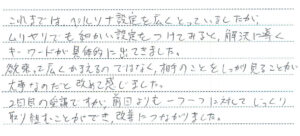 これまでは、ペルソナ設定を広くとっていましたが、
ムリヤリでも細かい設定をつけてみると、解決に導く
キーワードが具体的に出てきました。
欲張って広くかまえるのではなく、相手のことをしっかり見ることが
大事なのだと改めて感じました。
2回目の受講ですが、前回よりも一つ一つに対してじっくり
取り組むことができ、改善につながりました。